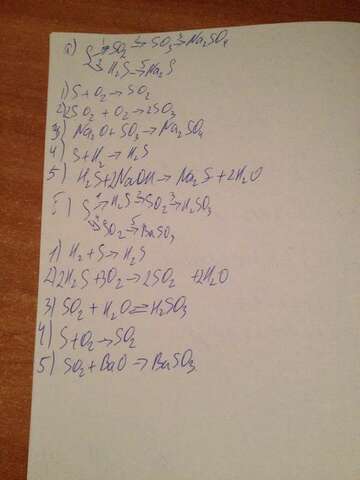 а) S →¹ SO₂ →² SO₃ →³ Na₂SO₄
→⁴ H₂S →⁵ Na₂S
1) S + O₂ → SO₂
2) 2SO₂ + O₂ → 2SO₃
3) Na₂O + SO₃ → Na₂SO₄
4) S + H₂ → H₂S
5) H₂S + 2NaOH → Na₂S + 2H₂O
S →¹ H₂S →² SO₂ →³ H₂SO₃
SO₂ →⁵ BaSO₃
1) H₂ + S → H₂S
2) 2H₂S + 3O₂ → 2SO₂ + 2H₂O
3) SO₂ + H₂O ⇄ H₂SO₃
4) S + O₂ → SO₂
5) SO₂ + BaO → BaSO₃